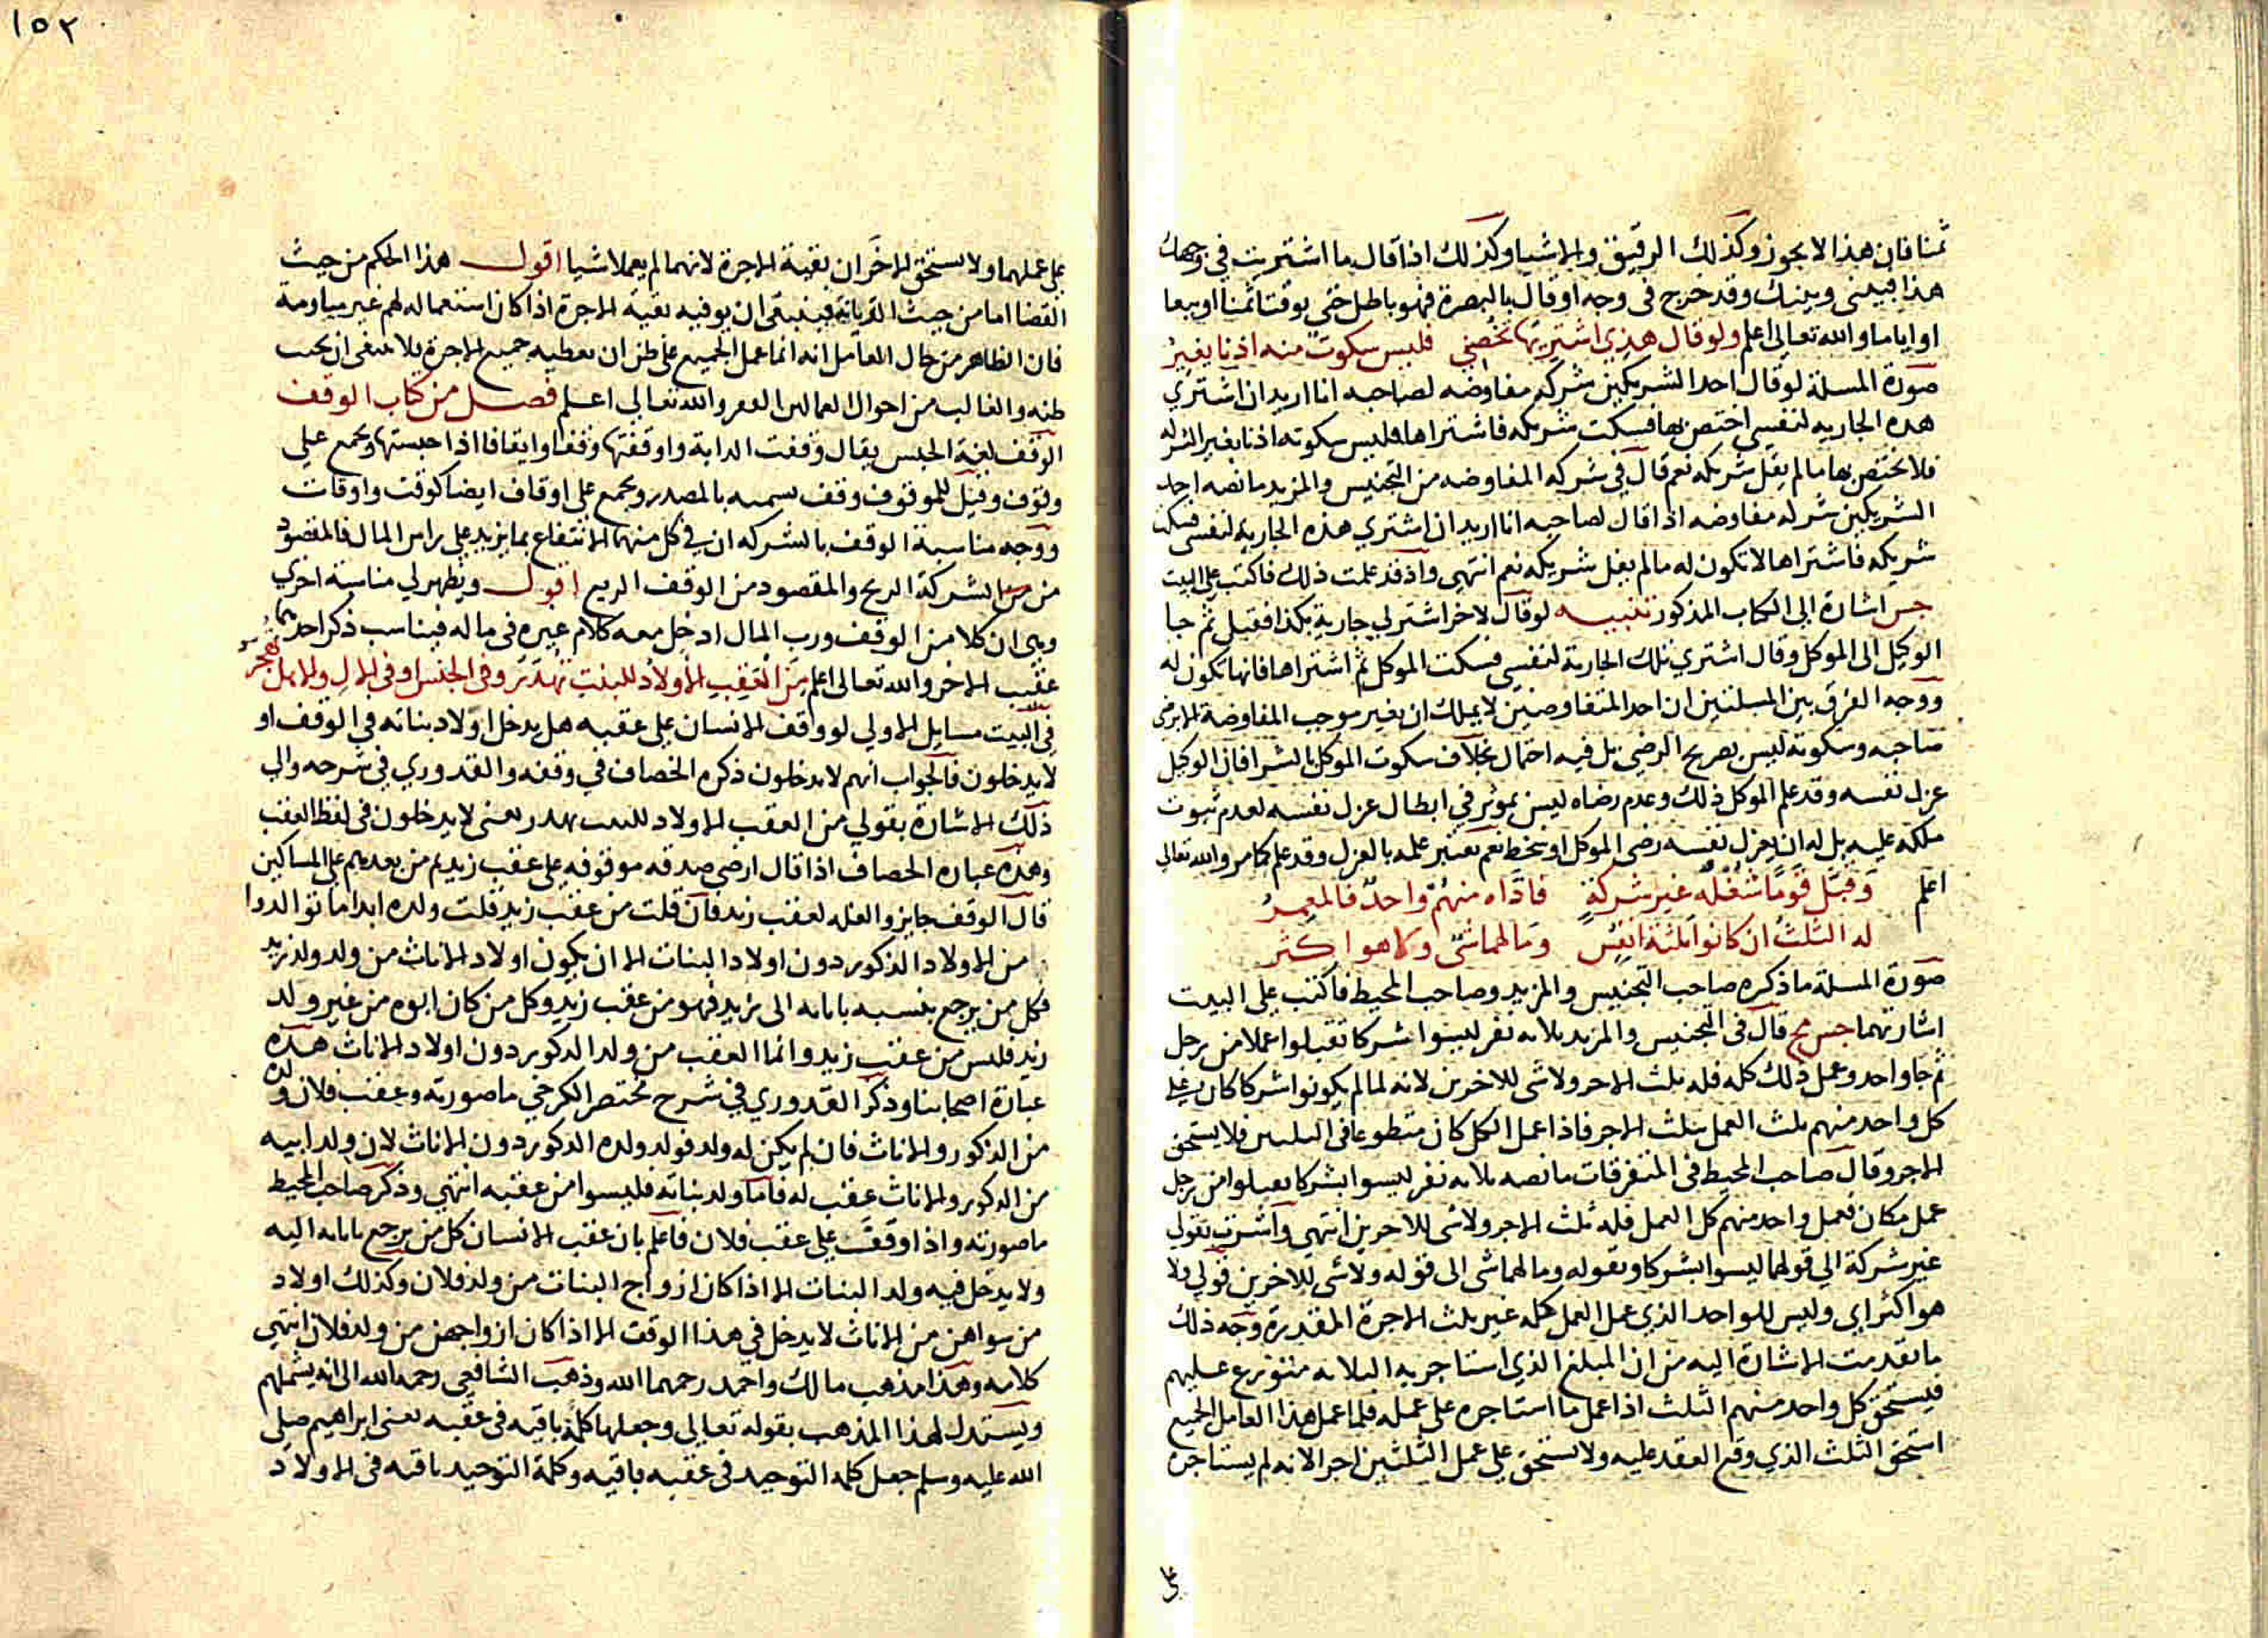 ثمنا فان هذا لا يجوز وكذلك الرقيق والاشيا وكذلك اذا قال ما اشتريت في وجهك
هذا فبيني وبينك وقد خرج في وجه او قال بالبصرة فهو باطل حتى يوقتا ثمنا او بيعا
او اياما والله تعالى اعلم ولو قال هذي اشتريها تخصني فليس سكوت منه اذنا يغير
صورة المسلة لو قال احد الشريكين شركه مفاوضه لصاحبه انا اريد ان اشتري
هذه الجاريه لنفسي اختص بها فسكت شريكه فاشتراها فليس سكوته اذنا بغير الشركه
فلا يختص بها ما لم يقل شريكه نعم قال في شركه المفاوضه من التجنيس والمزيد ما نصه احد
الشريكين شركه مفاوضه اذا قال لصاحبه انا اريد ان اشتري هذه الجاريه لنفسي فسكت
شريكه فاشتراها لا تكون له ما لم يقل شريكه نعم انتهى واذ قد علمت ذلك فاكتب على البيت
جس اشارة الى الكتاب المذكور تنبيه لو قال لاخر اشتر لي جارية بكذا فقبل ثم جا
الوكيل الى الموكل وقال اشتري تلك الجارية لنفسي فسكت الموكل ثم اشتراها فانها تكون له
ووجه الفرق بين المسلتين ان احد المتفاوضين لا يملك ان يغير موجب المفاوضة الا برضى
صاحبه وسكوته ليس بصريح الرضى بل فيه احتمال بخلاف سكوت الموكل بالشرا فان الوكيل
عزل نفسه وقد علم الموكل ذلك وعدم رضاه ليس بموثر في ابطال عزل نفسه لعدم ثبوت
ملكه عليه بل له ان يعزل نفسه رضى الموكل او سخط نعم يعتبر علمه بالعزل وقد علم كما مر والله تعالى
اعلم وقبل قوما شغله غير شركة فاداه منهم واحد فالمعمر
له الثلث ان كانوا ثلثة انفس وما لهما شي ولا هو اكثر
صورة المسلة ما ذكره صاحب التجنيس والمزيد وصاحب المحيط فاكتب على البيت
اشارتهما جس مح قال في التجنيس والمزيد ثلاثه نفر ليسوا شركا تقبلوا عملا من رجل
ثم جا واحد وعمل ذلك كله فله ثلث الاجر ولا شي للاخرين لانه لما لم يكونوا شركا كان على
كل واحد منهم ثلث العمل بثلث الاجر فاذا عمل الكل كان متطوعا في الثلثين فلا يستحق
الاجر وقال صاحب المحيط في المتفرقات ما نصه ثلاثه نفر ليسوا بشركا تقبلوا من رجل
عمل مكان فعمل واحد منهم كل العمل فله ثلث الاجر ولا شي للاخرين انتهى واشرت بقولي
غير شركة الى قولهما ليسوا بشركا وبقوله وما لهما شي الى قوله ولا شي للاخرين قولي ولا
هو اكثر اي وليس للواحد الذي عمل العمل كله غير ثلث الاجرة المقدرة وجه ذلك
ما تقدمت الاشارة اليه من ان المبلغ الذي استاجر به الثلاثه متوزع عليهم
فيستحق كل واحد منهم الثلث اذا عمل ما استاجره على عمله فلما عمل هذا العامل الجميع
استحق الثلث الذي وقع العقد عليه ولا يستحق على عمل الثلثين اجرا لانه لم يستاجره
على
١٥٢
على عملهما ولا يستحق الاخران بقية الاجرة لانهما لم يعملا شيا اقول هذا الحكم من حيث
القضا اما من حيث الديانة فينبغي ان يوفيه بقية الاجرة اذا كان استعماله لهم غير مياومة
فان الظاهر من حال العامل انه انما عمل الجميع على ظن ان يعطيه جميع الاجرة فلا ينبغي ان يخيب
ظنه والغالب من احوال العمالين الفقر والله تعالى اعلم فصل من كتاب الوقف
الوقف لغة الحبس يقال وقفت الدابة واوقفتها وقفا وايقافا اذا حبستها ويجمع على
وقوف وقيل للموقوف وقف تسميه بالمصدر ويجمع على اوقاف ايضا كوقت واوقات
ووجه مناسبة الوقف بالشركه ان في كل منهما الانتفاع بما يزيد على راس المال فالمقصود
من الشركة الربح والمقصود من الوقف الريع اقول ويظهر لي مناسبة اخرى
وهي ان كلا من الوقف ورب المال ادخل معه كلام غيره في ماله فيناسب ذكر احدهما
عقيب الاخر والله تعالى اعلم من العقب الاولاد للبنت تهدر وفي الجنس او في الال والاهل تهجر
في البيت مسايل الاولى لو وقف الانسان على عقبه هل يدخل اولاد بناته في الوقف او
لا يدخلون فالجواب انهم لا يدخلون ذكره الخصاف في وقفه والقدوري في شرحه والى
ذلك الاشارة بقولي من العقب الاولاد للبنت تهدر يعني لا يدخلون في لفظ العقب
وهذه عباره الخصاف اذا قال ارضي صدقه موقوفه على عقب زيد ثم من بعدهم على المساكين
قال الوقف جايز والغله لعقب زيد فان قلت من عقب زيد قلت ولده ابدا ما توالدوا
من الاولاد الذكور دون اولاد البنات الا ان يكون اولاد الاناث من ولد ولد زيد
فكل من يرجع بنسبه بابائه الى زيد فهو من عقب زيد وكل من كان ابوه من غير ولد
زيد فليس من عقب زيد وانما العقب من ولد الذكور دون اولاد الاناث هذه
عبارة اصحابنا وذكر القدوري في شرح مختصر الكرخي ما صورته وعقب فلان ولده
من الذكور والاناث فان لم يكن له ولد فولد ولده الذكور دون الاناث لان ولد ابيه
من الذكور والاناث عقب له فاما ولد بناته فليسوا من عقبه انتهى وذكر صاحب المحيط
ما صورته واذا وقف على عقب فلان فاعلم بان عقب الانسان كل من يرجع بابائه اليه
ولا يدخل فيه ولد البنات الا اذا كان ازواج البنات من ولد فلان وكذلك اولاد
من سواهن من الاناث لا يدخل في هذا الوقف الا اذا كان ازواجهن من ولد فلان انتهى
كلامه وهذا مذهب مالك واحمد رحمهما الله وذهب الشافعي رحمه الله الى انه يشملهم
ويستدل لهذا المذهب بقوله تعالى وجعلها كلمة باقيه في عقبه يعني ابراهيم صلى
الله عليه وسلم جعل كلمه التوحيد في عقبه باقيه وكلمة التوحيد باقيه في الاولاد